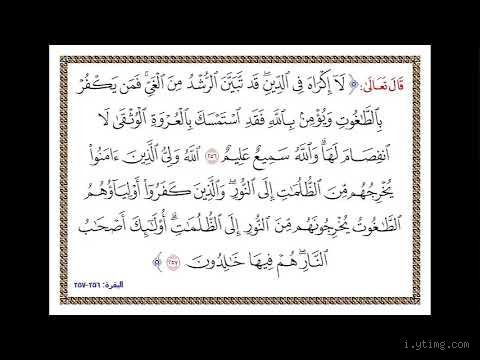 قَالَ تَعَالَىٰ: ﴿ لَآ إِكْرَاهَ فِي ٱلدِّينِۖ قَد تَّبَيَّنَ ٱلرُّشْدُ مِنَ ٱلْغَيِّۚ فَمَن يَكْفُرْ
بِٱلطَّٰغُوتِ وَيُؤْمِنۢ بِٱللَّهِ فَقَدِ ٱسْتَمْسَكَ بِٱلْعُرْوَةِ ٱلْوُثْقَىٰ لَا
ٱنفِصَامَ لَهَاۗ وَٱللَّهُ سَمِيعٌ عَلِيمٌ ٢٥٦ ٱللَّهُ وَلِيُّ ٱلَّذِينَ ءَامَنُواْ
يُخْرِجُهُم مِّنَ ٱلظُّلُمَٰتِ إِلَى ٱلنُّورِۖ وَٱلَّذِينَ كَفَرُوٓاْ أَوْلِيَآؤُهُمُ
ٱلطَّٰغُوتُ يُخْرِجُونَهُم مِّنَ ٱلنُّورِ إِلَى ٱلظُّلُمَٰتِۗ أُوْلَٰٓئِكَ أَصْحَٰبُ
ٱلنَّارِۖ هُمْ فِيهَا خَٰلِدُونَ ٢٥٧ ﴾
البقرة: ٢٥٦-٢٥٧
i.ytimg.com